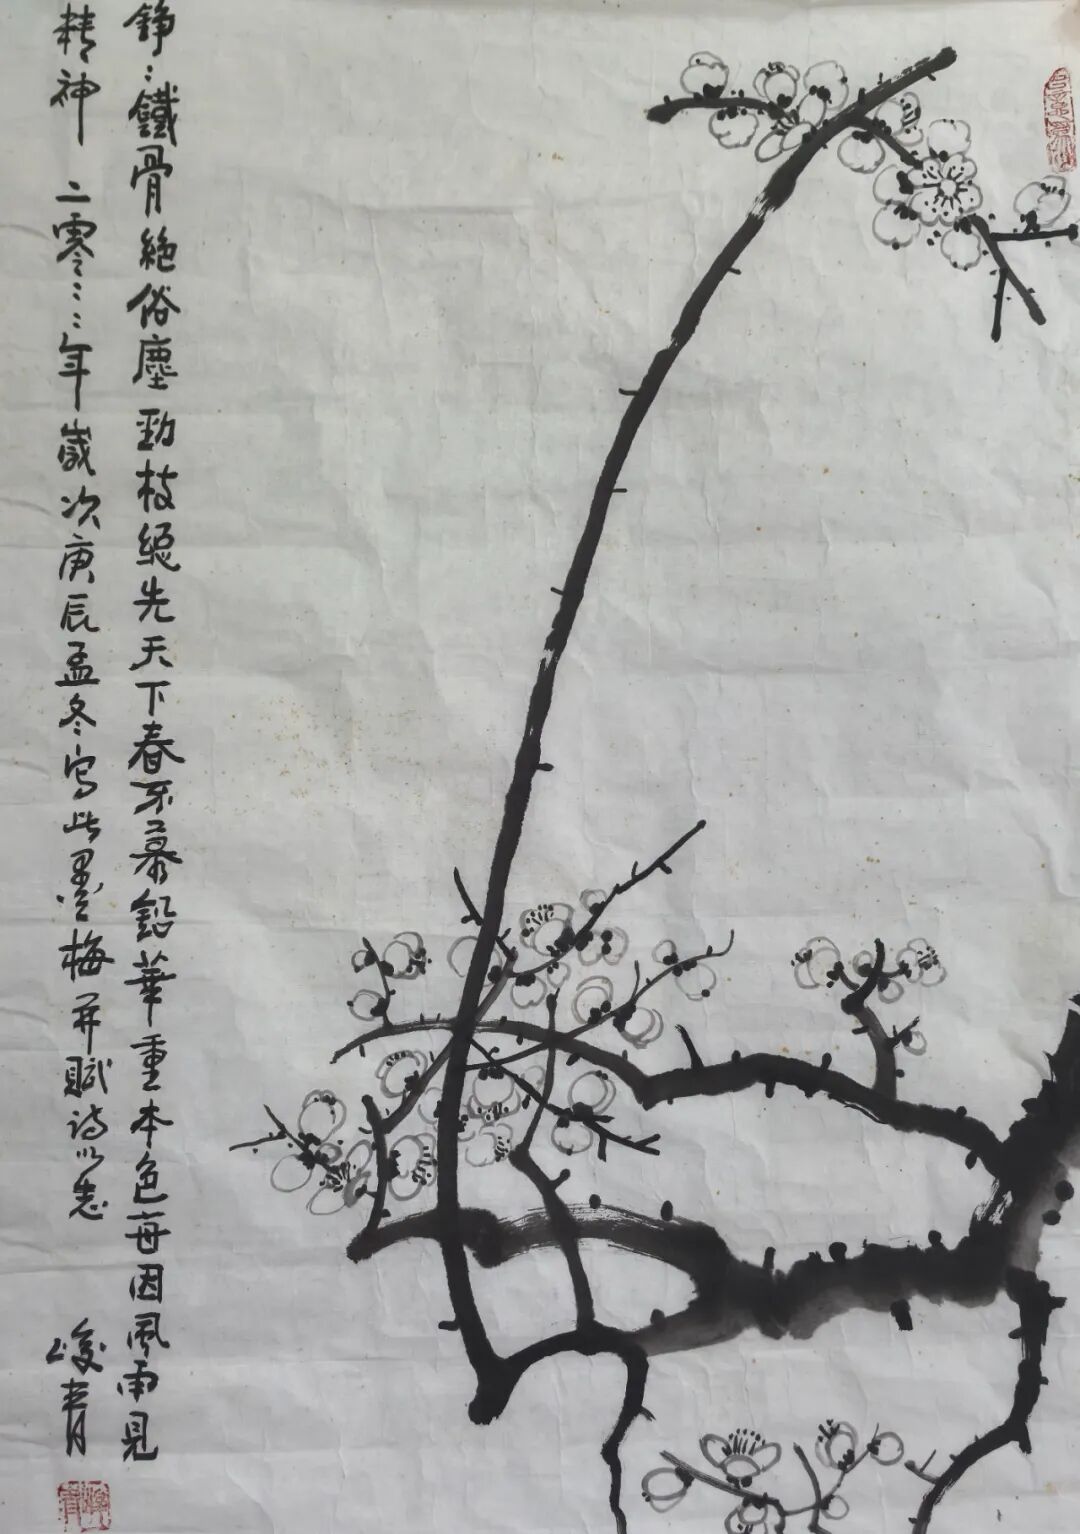 錚〻鐵骨絶俗塵勁枝總先天下春不慕鉛華重本色每因風雨見
精神 二零〻〻年歲次庚辰孟冬寫此墨梅并賦詩以志 峻青